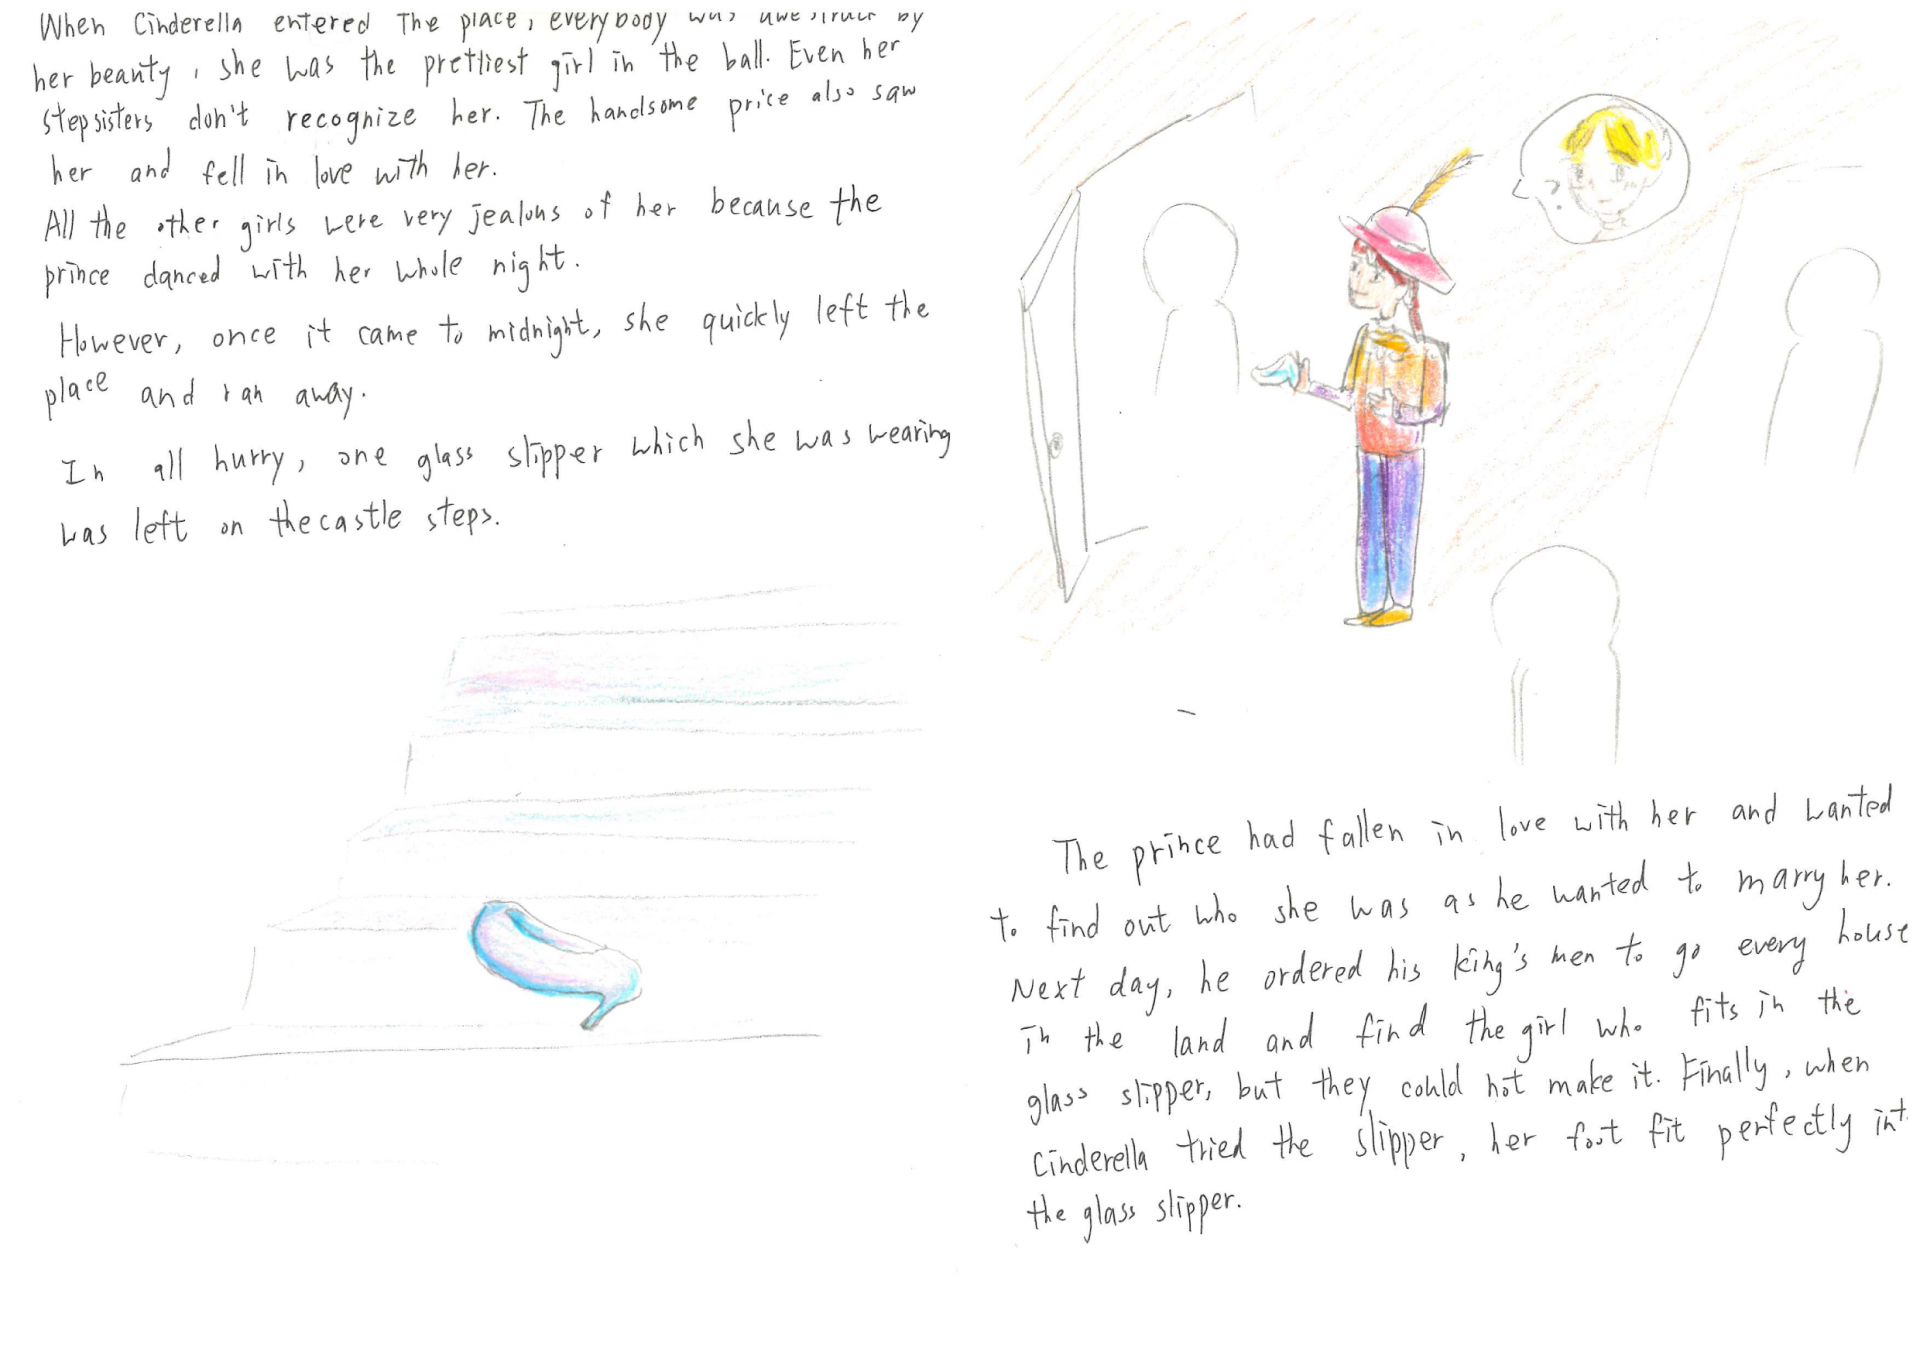 When Cinderella entered The place, everybody was awestruck by
her beauty, she was the prettiest girl in the ball. Even her
stepsisters don't recognize her. The handsome price also saw
her and fell in love with her.
All the other girls were very jealous of her because the
prince danced with her whole night.
However, once it came to midnight, she quickly left the
place and ran away.
In all hurry, one glass slipper which she was wearing
was left on the castle steps.
The prince had fallen in love with her and wanted
to find out who she was as he wanted to marry her.
Next day, he ordered his king's men to go every house
in the land and find the girl who fits in the
glass slipper, but they could not make it. Finally, when
Cinderella tried the slipper, her foot fit perfectly into
the glass slipper.